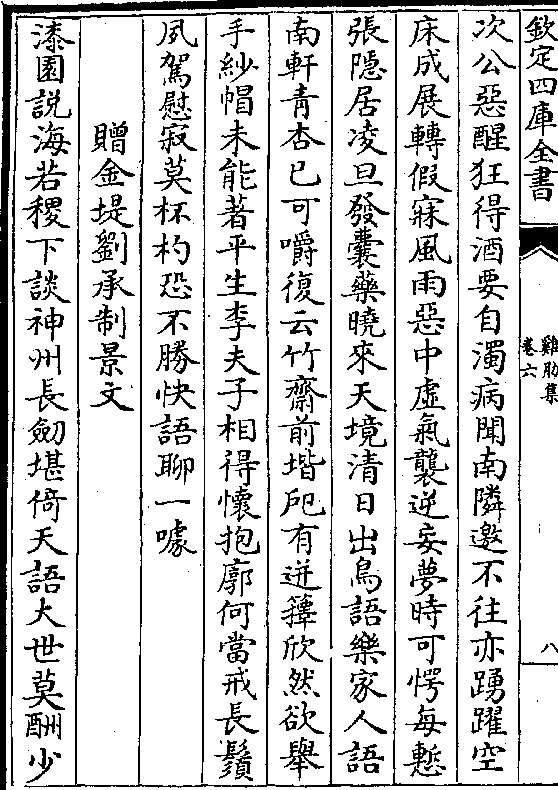 欽定四庫全書
雞肋集
卷六
八
次公惡醒狂得酒要自濁病聞南隣邀不往亦踴躍空
床成展轉假寐風雨惡中虛氣襲逆妄夢時可愕每慙
張隱居凌旦發囊藥曉來天境清日出鳥語樂家人語
南軒青杏已可嚼復云竹齋前堦戺有迸籜欣然欲舉
手紗帽未能著平生李夫子相得懷抱廓何當戒長鬚
夙駕慰寂莫杯杓恐不勝快語聊一噱
贈金堤劉承制景文
漆園説海若稷下談神州長劒堪倚天語大世莫酬少